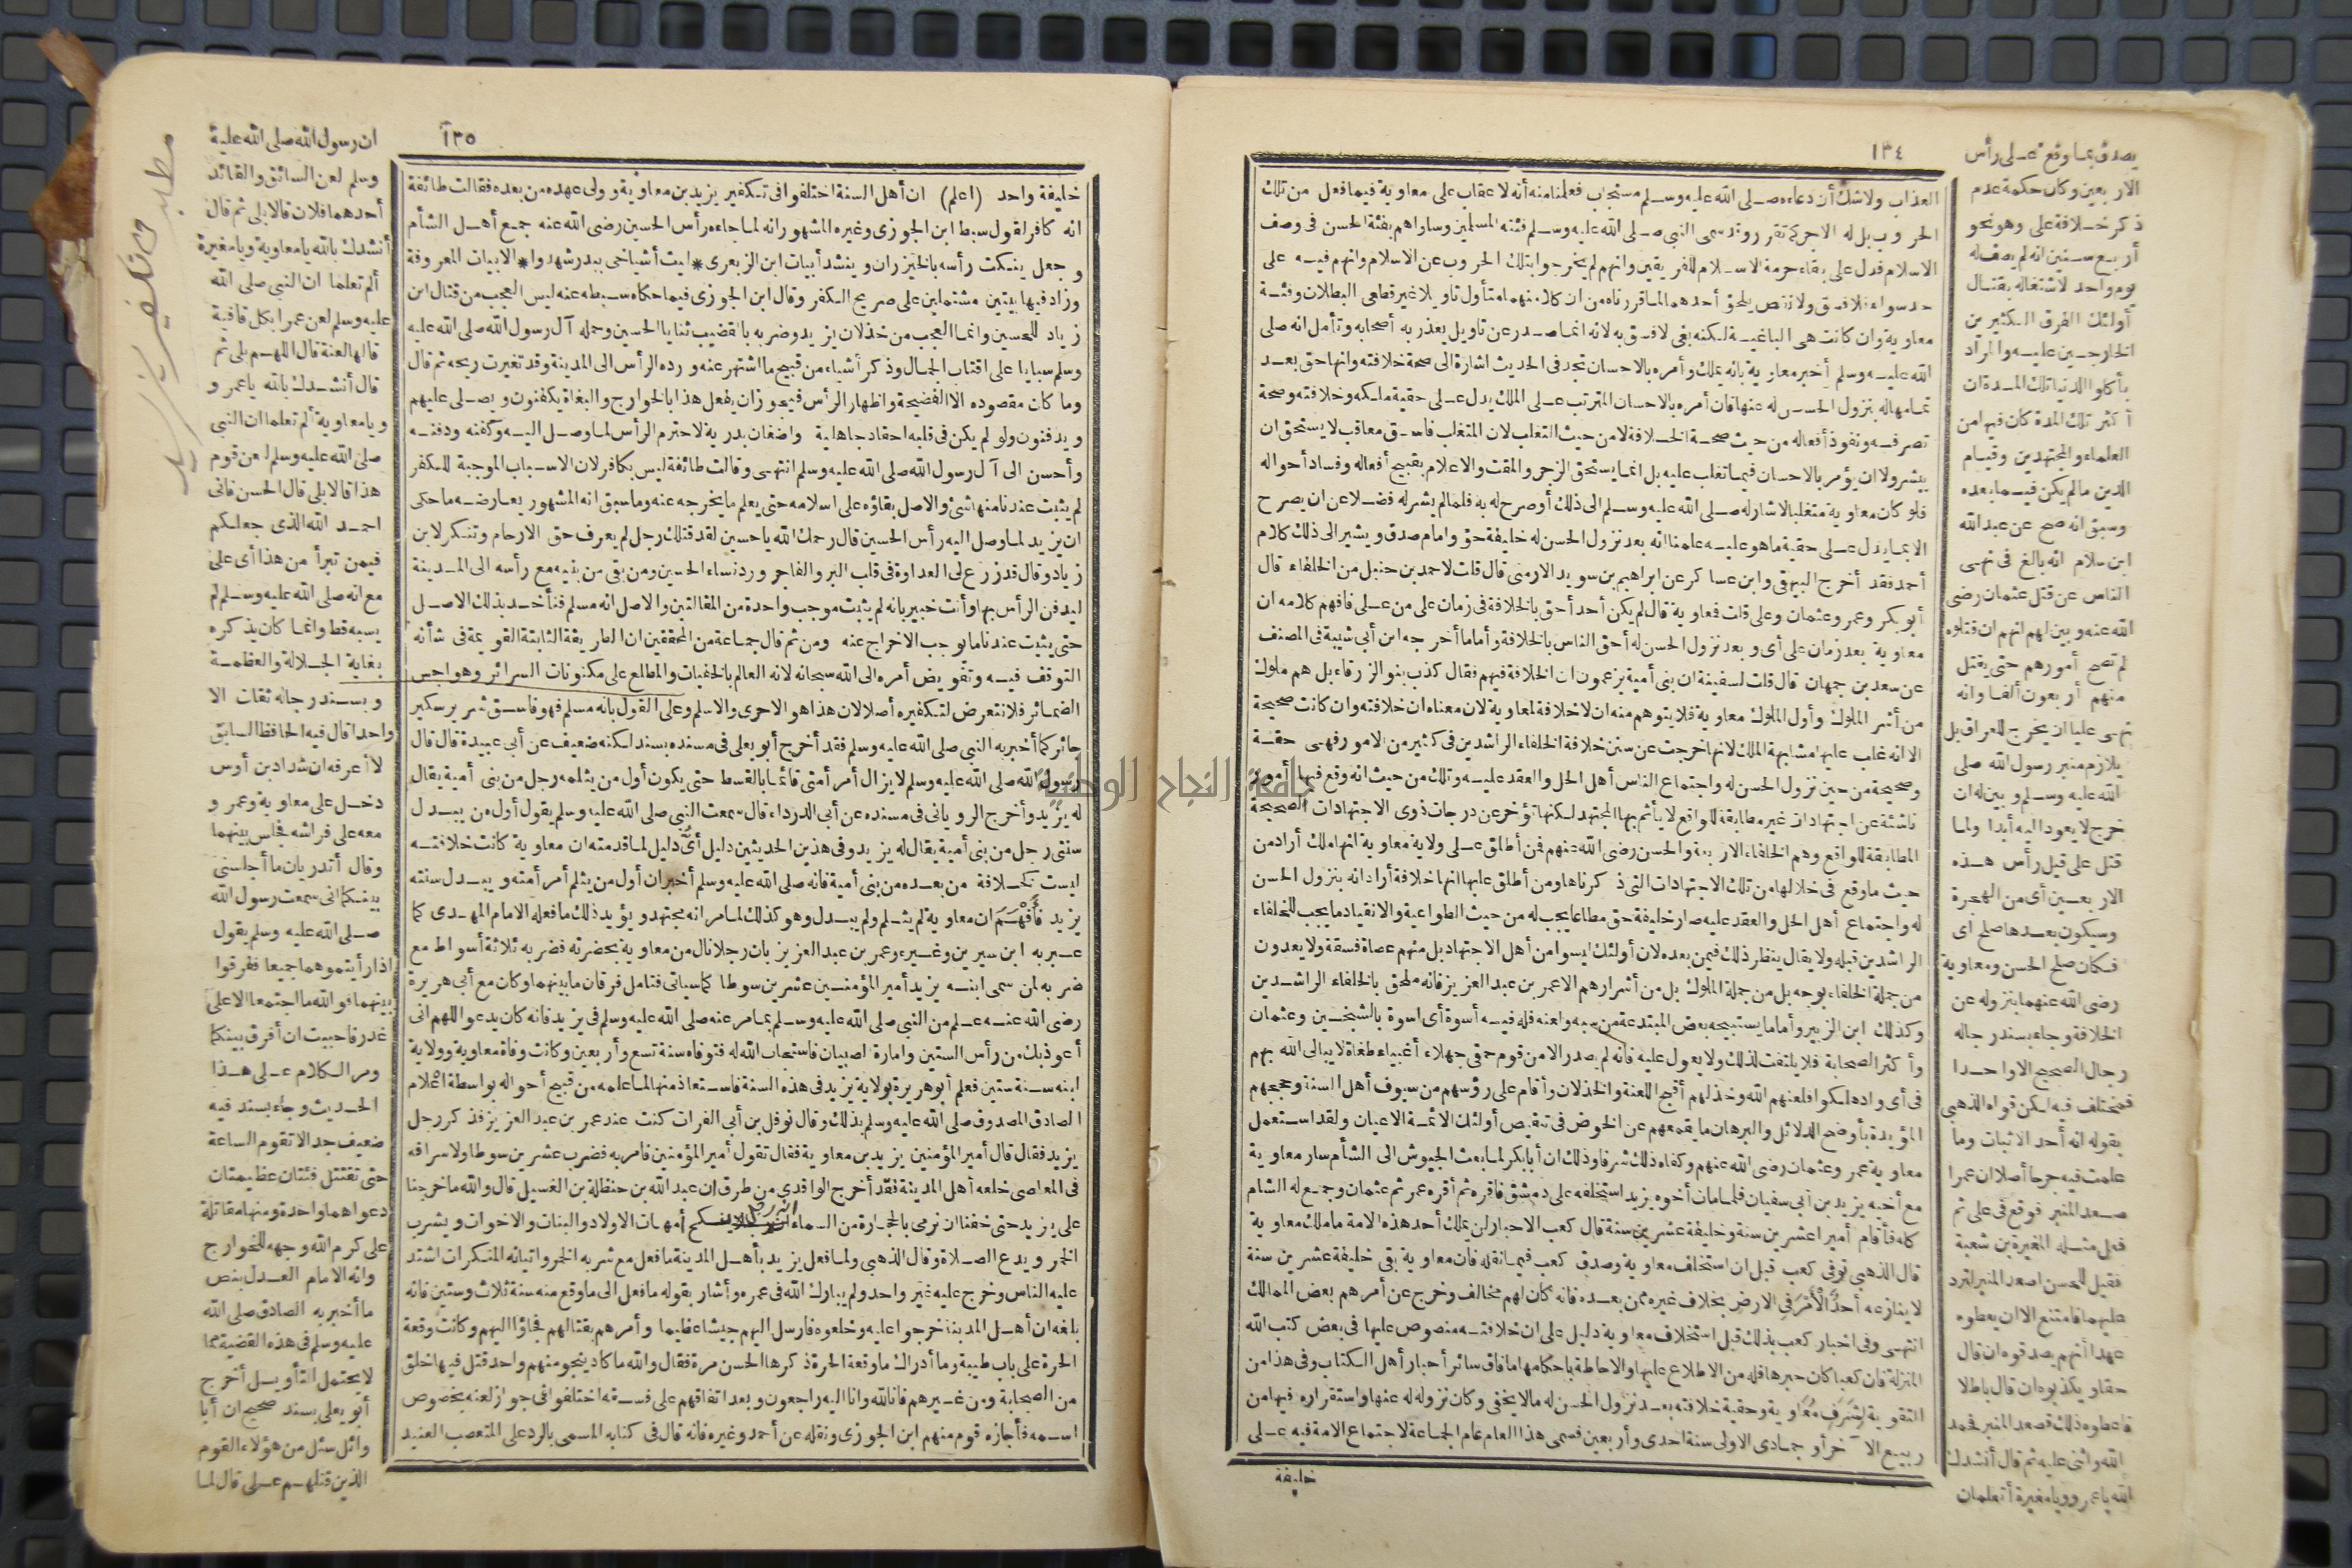 ١٣٤
العذاب ولاشك أن دعاءه صلى الله عليه وسلم مستجاب فعلمنا منه أنه لاعقاب على معاوية فيما فعل من تلك
الحروب بل له الاجر كما تقرر وقد سمى النبي صلى الله عليه وسلم فئته المسلمين وساواهم بفئة الحسن فى وصف
الاسلام فدل على بقاء حرمة الاسلام للفريقين وانهم لم يخرجوا بتلك الحروب عن الاسلام وانهم فيه على
حد سواء فلا فسق ولا نقص يلحق أحدهما لما قررناه من ان كلا منهما متأول تاويلا غير قطعى البطلان وفئة
معاوية وان كانت هى الباغية لكنه بغى لا فسق به لانه انما صدر عن تاويل يعذر به أصحابه وتأمل انه صلى
الله عليه وسلم أخبر معاوية بانه يملك وأمره بالاحسان تجد فى الحديث اشارة الى صحة خلافته وانها حق بعد
تمامها له بنزول الحسن له عنها فان أمره بالاحسان المترتب على الملك يدل على حقية ملكه وخلافته وصحة
تصرفه ونفوذ أفعاله من حيث صحة الخلافة لا من حيث التغلب لان المتغلب فاسق معاقب لا يستحق ان
يبشر ولا ان يؤمر بالاحسان فيما تغلب عليه بل انما يستحق الزجر والمقت والاعلام بقبيح أفعاله وفساد أحواله
فلو كان معاوية متغلبا لاشار له صلى الله عليه وسلم الى ذلك أو صرح له به فلما لم يشر له فضلا عن ان يصرح
الا بما يدل على حقية ما هو عليه علمنا انه بعد نزول الحسن له خليفة حق وامام صدق ويشير الى ذلك كلام
أحمد فقد أخرج البيهقى وابن عساكر عن ابراهيم بن سويد الارمنى قال قلت لاحمد بن حنبل من الخلفاء قال
أبو بكر وعمر وعثمان وعلى قلت فمعاوية قال لم يكن أحد أحق بالخلافة فى زمان على من على فافهم كلامه ان
معاوية بعد زمان على أى وبعد نزول الحسن له أحق الناس بالخلافة وأما ما أخرجه ابن أبى شيبة فى المصنف
عن سعد بن جمهان قال قلت لسفينة ان بنى أمية يزعمون ان الخلافة فيهم فقال كذب بنو الزرقاء بل هم ملوك
من أشر الملوك وأول الملوك معاوية فلا يتوهم منه ان لا خلافة لمعاوية لان معناه ان خلافته وان كانت صحيحة
الا انه غلب عليها مشابهة الملك لانها خرجت عن سنن خلافة الخلفاء الراشدين فى كثير من الامور فهى حقة
وصحيحة من حين نزول الحسن له واجتماع الناس أهل الحل والعقد عليه وتلك من حيث انه وقع فيها أمور
ناشئة عن اجتهادات غير مطابقة للواقع لا يأثم بها المجتهد لكنها تؤخر عن درجات ذوى الاجتهادات الصحيحة
المطابقة للواقع وهم الخلفاء الاربعة والحسن رضى الله عنهم فمن أطلق على ولاية معاوية انها ملك أراد من
حيث ما وقع فى خلالها من تلك الاجتهادات التى ذكرناها ومن أطلق عليها انها خلافة أراد انه بنزول الحسن
له واجتماع أهل الحل والعقد عليه صار خليفة حق مطاعا يجب له من حيث الطواعية والانقياد ما يجب للخلفاء
الراشدين قبله ولا يقال بنظر ذلك فيمن بعده لان أولئك ليسوا من أهل الاجتهاد بل منهم عصاة فسقة ولا يعدون
من جملة الخلفاء بوجه بل من جملة الملوك بل من أشرارهم الا عمر بن عبد العزيز فانه ملحق بالخلفاء الراشدين
وكذلك ابن الزبير وأما ما يستبيحه بعض المبتدعة من سبه ولعنه فله فيه أسوة أى اسوة بالشيخين وعثمان
وأكثر الصحابة فلا يلتفت لذلك ولا يعول عليه فانه لم يصدر الا من قوم حمقى جهلاء أغبياء طغاة لا يبالى الله بهم
فى أى واد هلكوا فلعنهم الله وخذلهم أقبح اللعنة والخذلان وأقام على رؤسهم من سيوف أهل السنة وحججهم
المؤيدة بأوضح الدلائل والبرهان ما يقمعهم عن الخوض فى تنقيص أولئك الائمة الاعيان ولقد استعمل
معاوية عمر وعثمان رضى الله عنهم وكفاه ذلك شرفا وذلك ان أبا بكر لما بعث الجيوش الى الشأم سار معاوية
مع أخيه يزيد بن أبى سفيان فلما مات أخوه يزيد استخلفه على دمشق فاقره ثم أقره عمر ثم عثمان وجمع له الشام
كله فأقام أميرا عشرين سنة وخليفة عشرين سنة قال كعب الاحبار لن يملك أحد هذه الامة ما ملك معاوية
قال الذهبى توفى كعب قبل ان استخلف معاوية وصدق كعب فيما نقله فان معاوية بقى خليفة عشرين سنة
لا ينازعه أحد الامر فى الارض بخلاف غيره ممن بعده فانه كان لهم مخالف وخرج عن أمرهم بعض الممالك
انتهى وفى اخبار كعب بذلك قبل استخلاف معاوية دليل على ان خلافته منصوص عليها فى بعض كتب الله
المنزلة فان كعبا كان حبرها فله من الاطلاع عليها والاحاطة باحكامها ما فاق سائر أحبار أهل الكتاب وفى هذا من
التقوية لشرف معاوية وحقية خلافته بعد نزول الحسن له ما لا يخفى وكان نزوله له عنها واستقراره فيها من
ربيع الآخر أو جمادى الاولى سنة احدى وأربعين فسمى هذا العام عام الجماعة لاجتماع الامة فيه على
خليفة
يصدق بما وقع على رأس
الاربعين وكان حكمة عدم
ذكر خلافة على وهو نحو
أربع سنين انه لم يصف له
يوم واحد لاشتغاله بقتال
أولئك الفرق الكثيرين
الخارجين عليه والمراد
بأكلوا الدنيا تلك المدة ان
أكثر تلك المدة كان فيها من
العلماء والمجتهدين وقيام
الدين ما لم يكن فيما بعده
وسبق انه صح عن عبد الله
ابن سلام انه بالغ فى نهى
الناس عن قتل عثمان رضى
الله عنه وبين لهم انهم ان قتلوه
لم تصح أمورهم حتى يقتل
منهم أربعون ألفا وانه
نهى عليا ان يخرج للعراق بل
يلازم منبر رسول الله صلى
الله عليه وسلم وبين له ان
خرج لا يعود اليه أبدا ولما
قتل على قيل رأس هذه
الاربعين أى من الهجرة
وسيكون بعدها صلح أى
فكان صلح الحسن ومعاوية
رضى الله عنهما بنزوله عن
الخلافة وجاء بسند رجاله
رجال الصحيح الا واحدا
فمختلف فيه لكن قواه الذهبى
بقوله انه أحد الاثبات وما
علمت فيه جرحا أصلا ان عمرا
صعد المنبر فوقع فى على ثم
فعل مثله المغيرة بن شعبة
فقيل للحسن اصعد المنبر لترد
عليهما فامتنع الا ان يعطوه
عهدا أنهم يصدقوه ان قال
حقا ويكذبوه ان قال باطلا
فاعطوه ذلك فصعد المنبر فحمد
الله واثنى عليه ثم قال أنشدك
الله يا عمرو ويا مغيرة أتعلمان
١٣٥
خليفة واحد (اعلم) ان أهل السنة اختلفوا فى تكفير يزيد بن معاوية وولى عهده من بعده فقالت طائفة
انه كافر لقول سبط ابن الجوزى وغيره المشهور انه لما جاءه رأس الحسين رضى الله عنه جمع أهل الشأم
وجعل ينكت رأسه بالخيزران وينشد أبيات ابن الزبعرى * ليت أشياخى ببدر شهدوا * الابيات المعروفة
وزاد فيها بيتين مشتملين على صريح الكفر وقال ابن الجوزى فيما حكاه سبطه عنه ليس العجب من قتال ابن
زياد للحسين وانما العجب من خذلان يزيد وضربه بالقضيب ثنايا الحسين وحمله آل رسول الله صلى الله عليه
وسلم سبايا على اقتاب الجمال وذكر أشياء من قبيح ما اشتهر عنه ورده الرأس الى المدينة وقد تغيرت ريحه ثم قال
وما كان مقصوده الا الفضيحة واظهار الرأس فيجوز ان يفعل هذا بالخوارج والبغاة يكفنون ويصلى عليهم
ويدفنون ولو لم يكن فى قلبه احقاد جاهلية واضغان بدرية لاحترم الرأس لما وصل اليه وكفنه ودفنه
وأحسن الى آل رسول الله صلى الله عليه وسلم انتهى وقالت طائفة ليس بكافر لان الاسباب الموجبة للكفر
لم يثبت عندنا منها شئ والاصل بقاؤه على اسلامه حتى يعلم ما يخرجه عنه وما سبق انه المشهور يعارضه ما حكى
ان يزيد لما وصل اليه رأس الحسين قال رحمك الله يا حسين لقد قتلك رجل لم يعرف حق الارحام وتنكر لابن
زياد وقال قد زرع لى العداوة فى قلب البر والفاجر ورد نساء الحسين ومن بقى من بنيه مع رأسه الى المدينة
ليدفن الرأس بها وأنت خبير بانه لم يثبت موجب واحدة من المقالتين والاصل انه مسلم فنأخذ بذلك الاصل
حتى يثبت عندنا ما يوجب الاخراج عنه ومن ثم قال جماعة من المحققين ان الطريقة الثابتة القويمة فى شأنه
التوقف فيه وتفويض أمره الى الله سبحانه لانه العالم بالخفيات والمطلع على مكنونات السرائر وهواجس
الضمائر فلا نتعرض لتكفيره أصلا لان هذا هو الاحرى والاسلم وعلى القول بانه مسلم فهو فاسق شرير سكير
جائر كما أخبر به النبي صلى الله عليه وسلم فقد أخرج أبو يعلى فى مسنده بسند لكنه ضعيف عن أبى عبيدة قال قال
رسول الله صلى الله عليه وسلم لا يزال أمر أمتى قائما بالقسط حتى يكون أول من يثلمه رجل من بنى أمية يقال
له يزيد وأخرج الرويانى فى مسنده عن أبى الدرداء قال سمعت النبي صلى الله عليه وسلم يقول أول من يبدل
سنتى رجل من بنى أمية يقال له يزيد وفى هذين الحديثين دليل أى دليل لما قدمته ان معاوية كانت خلافته
ليست كخلافة من بعده من بنى أمية فانه صلى الله عليه وسلم أخبر ان أول من يثلم أمر أمته ويبدل سنته
يزيد فافهم ان معاوية لم يثلم ولم يبدل وهو كذلك لما مر انه مجتهد ويؤيد ذلك ما فعله الامام المهدى كما
عبر به ابن سيرين وغيره عمر بن عبد العزيز بان رجلا نال من معاوية بحضرته فضربه ثلاثة أسواط مع
ضربه لمن سمى ابنه يزيد أمير المؤمنين عشرين سوطا كما سياتى فتامل فرقان ما بينهما وكان مع أبى هريرة
رضى الله عنه علم من النبي صلى الله عليه وسلم بما مر عنه صلى الله عليه وسلم فى يزيد فانه كان يدعو اللهم انى
أعوذ بك من رأس الستين وامارة الصبيان فاستجاب الله له فتوفاه سنة تسع وأربعين وكانت وفاة معاوية وولاية
ابنه سنة ستين فعلم أبو هريرة بولاية يزيد فى هذه السنة فاستعاذ منها لما علمه من قبيح أحواله بواسطة اعلام
الصادق المصدوق صلى الله عليه وسلم بذلك وقال نوفل بن أبى الفرات كنت عند عمر بن عبد العزيز فذكر رجل
يزيد فقال قال أمير المؤمنين يزيد بن معاوية فقال تقول أمير المؤمنين فامر به فضرب عشرين سوطا ولاسرافه
فى المعاصى خلعه أهل المدينة فقد أخرج الواقدى من طرق ان عبد الله بن حنظلة بن الغسيل قال والله ما خرجنا
على يزيد حتى خفنا ان نرمى بالحجارة من السماء ان رجلا ينكح أمهات الاولاد والبنات والاخوات ويشرب
الخمر ويدع الصلاة وقال الذهبى ولما فعل يزيد بأهل المدينة ما فعل مع شربه الخمر واتيانه المنكرات اشتد
عليه الناس وخرج عليه غير واحد ولم يبارك الله فى عمره وأشار بقوله ما فعل الى ما وقع منه سنة ثلاث وستين فانه
بلغه ان أهل المدينة خرجوا عليه وخلعوه فارسل اليهم جيشا عظيما وأمرهم بقتالهم فجاؤا اليهم وكانت وقعة
الحرة على باب طيبة وما أدراك ما وقعة الحرة ذكرها الحسن مرة فقال والله ما كاد ينجو منهم واحد قتل فيها خلق
من الصحابة ومن غيرهم فانا لله وانا اليه راجعون وبعد اتفاقهم على فسقه اختلفوا فى جواز لعنه بخصوص
اسمه فأجازه قوم منهم ابن الجوزى ونقله عن أحمد وغيره فانه قال فى كتابه المسمى بالرد على المتعصب العنيد
ان رسول الله صلى الله عليه
وسلم لعن السائق والقائد
أحدهما فلان قالا بلى ثم قال
أنشدك بالله يا معاوية ويا مغيرة
ألم تعلما ان النبي صلى الله
عليه وسلم لعن عمرا بكل قافية
قالها لعنة قال اللهم بلى ثم
قال أنشدك بالله يا عمرو
ويا معاوية ألم تعلما ان النبي
صلى الله عليه وسلم لعن قوم
هذا قالا بلى قال الحسن فانى
احمد الله الذى جعلكم
فيمن تبرأ من هذا أى على
مع انه صلى الله عليه وسلم لم
يسبه قط وانما كان يذكره
بغاية الجلالة والعظمة
وبسند رجاله ثقات الا
واحدا قال فيه الحافظ السابق
لا أعرفه ان شداد بن أوس
دخل على معاوية وعمرو
معه على فراشه فجلس بينهما
وقال أتدريان ما أجلسنى
بينكما انى سمعت رسول الله
صلى الله عليه وسلم يقول
اذا رأيتموهما جميعا ففرقوا
بينهما فوالله ما اجتمعا الا على
غدر فاحببت ان أفرق بينكما
ومر الكلام على هذا
الحديث وجاء بسند فيه
ضعيف جدا لا تقوم الساعة
حتى تقتتل فئتان عظيمتان
دعواهما واحدة ومنها مقاتلة
على كرم الله وجهه للخوارج
وانه الامام العدل بنص
ما أخبر به الصادق صلى الله
عليه وسلم فى هذه القضية مما
لا يحتمل التأويل أخرج
أبو يعلى بسند صحيح ان أبا
وائل سئل من هؤلاء القوم
الذين قتلهم على قال لما
مطلب فى تكفير يزيد
جامعة النجاح الوطنية